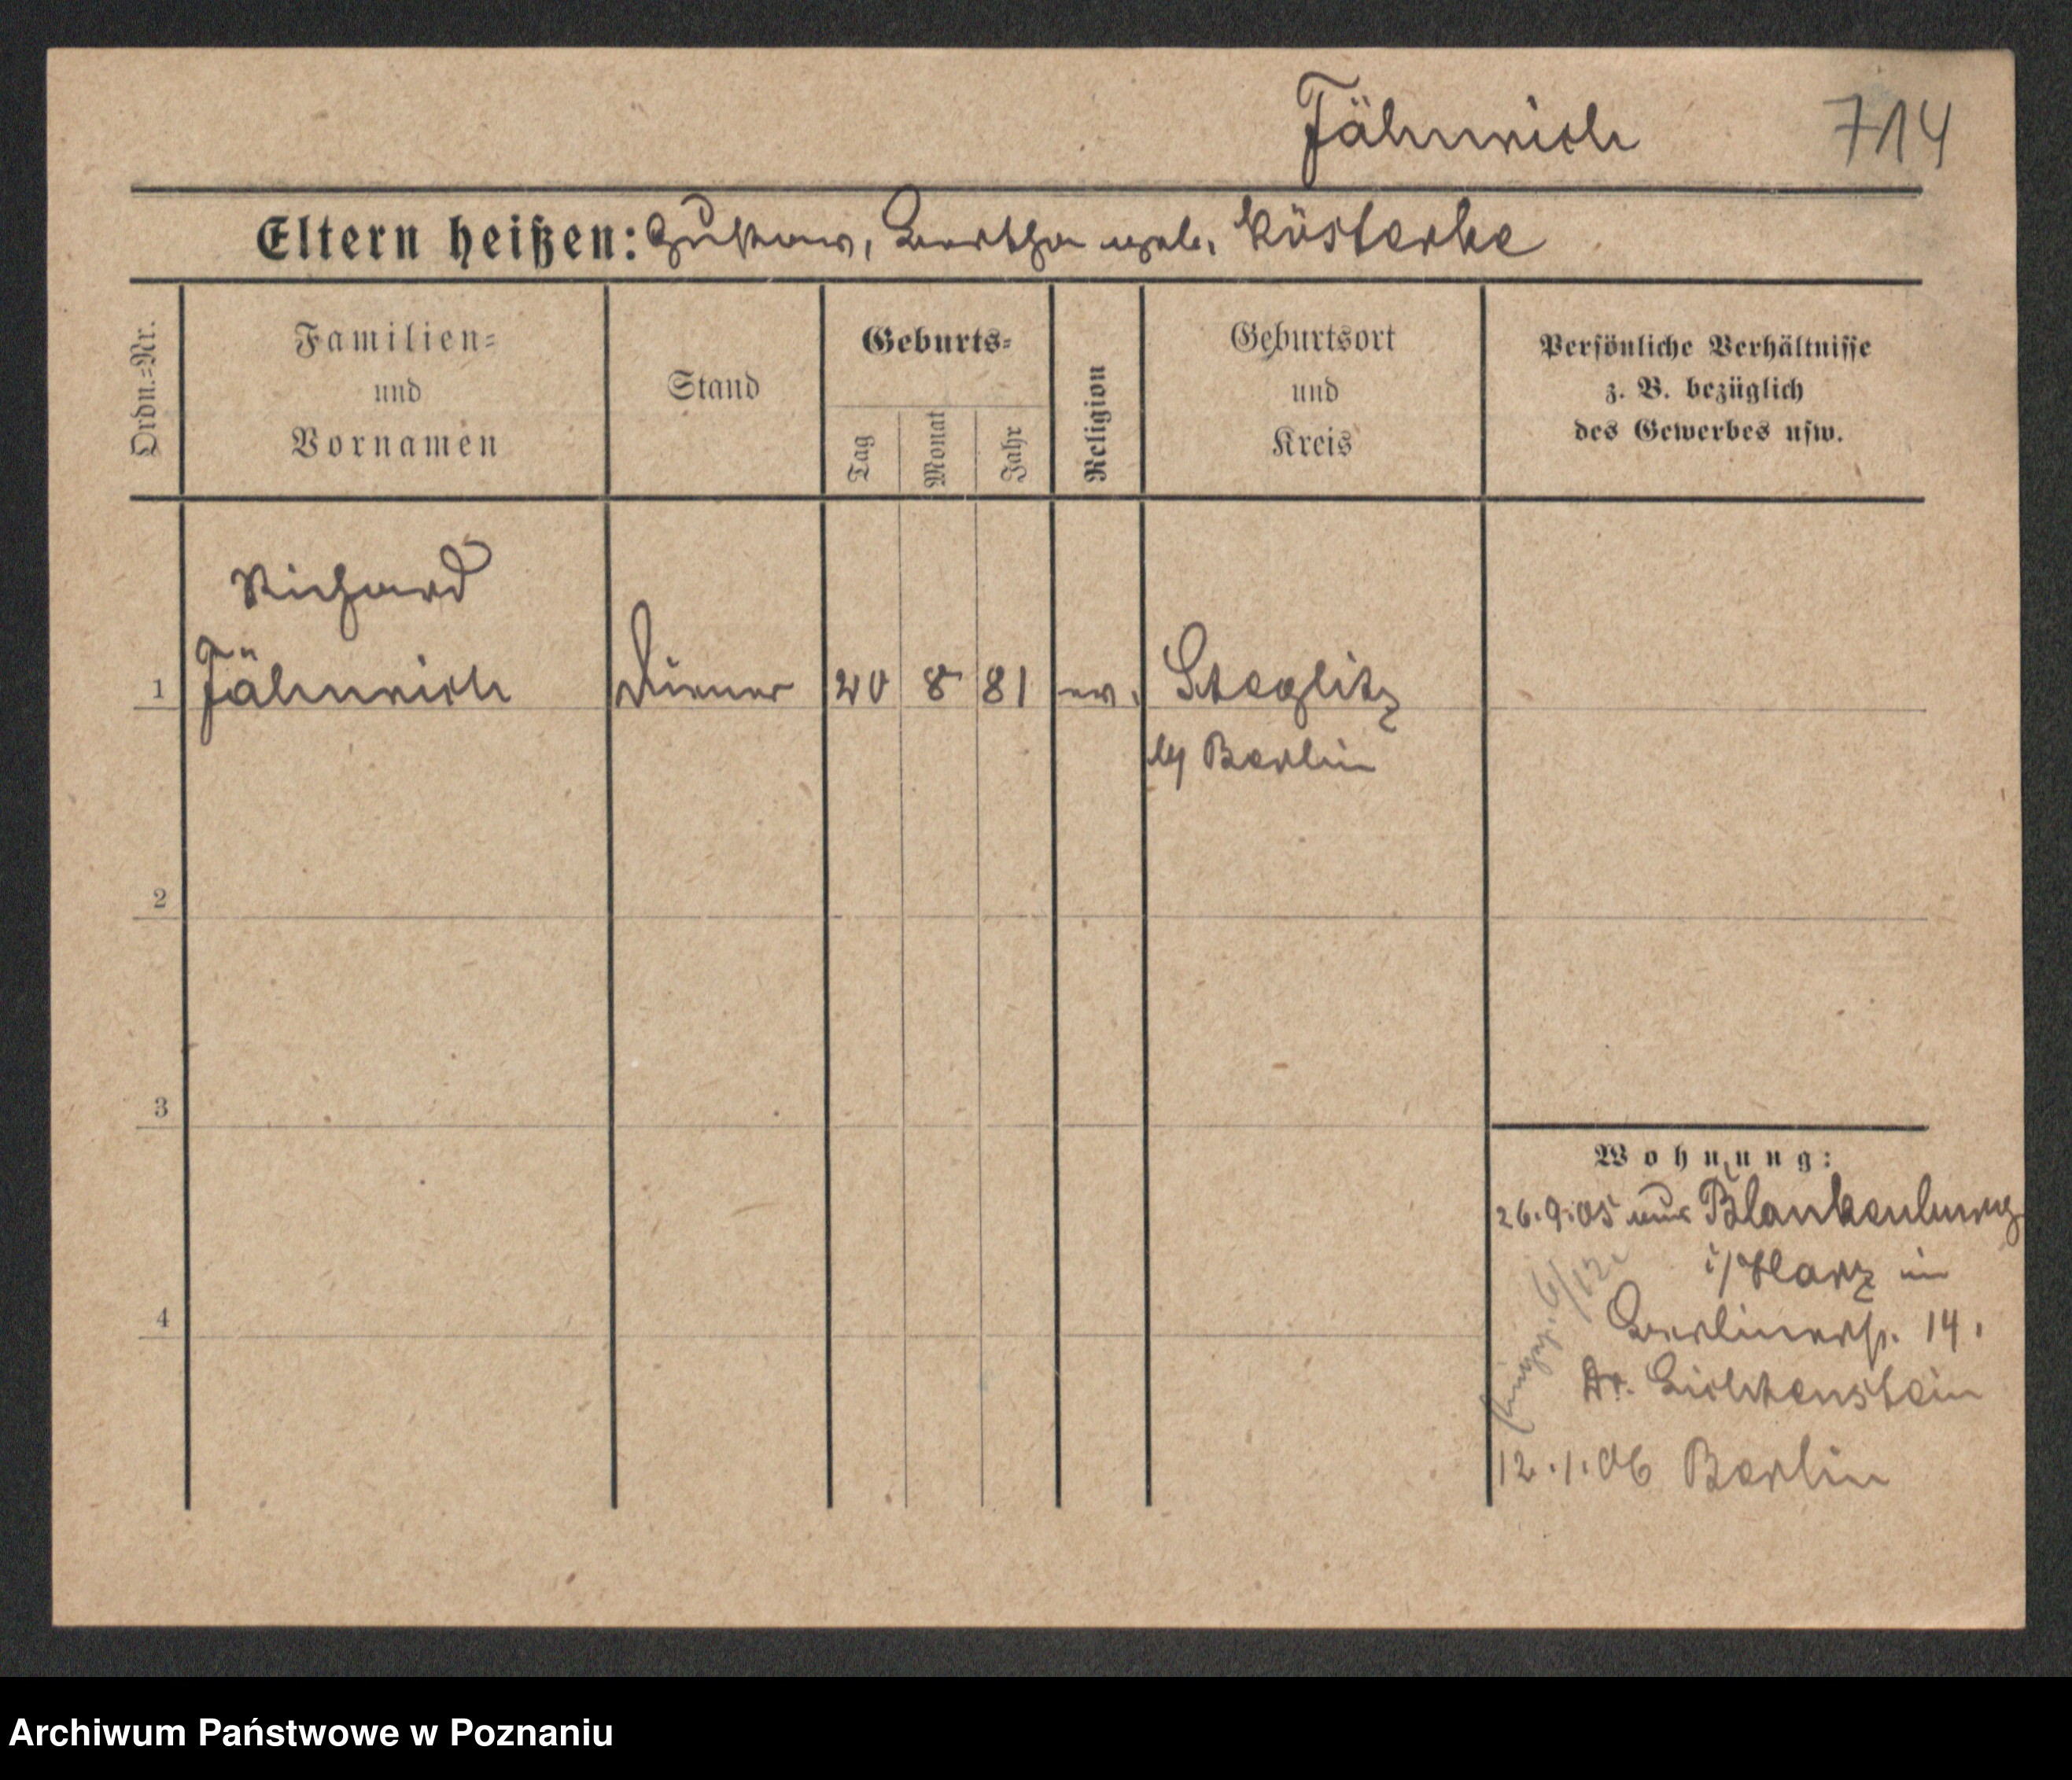 Fähnrich 714
Eltern heißen: Gustav, Bertha geb. Küsterke
Ordn.=Nr.
Familien=
und
Vornamen
Stand
Geburts=
Tag
Monat
Jahr
Religion
Geburtsort
und
Kreis
Persönliche Verhältnisse
z. B. bezüglich
des Gewerbes usw.
Richard
1 Fähnrich Diener 20 8 81 ev. Steglitz
b/ Berlin
2
3
4
Wohnung:
26.9.05 aus Blankenburg
i/Harz in
Berlinerstr. 14.
Dr. Lichtenstein
6/12.
12.1.06 Berlin
Archiwum Państwowe w Poznaniu